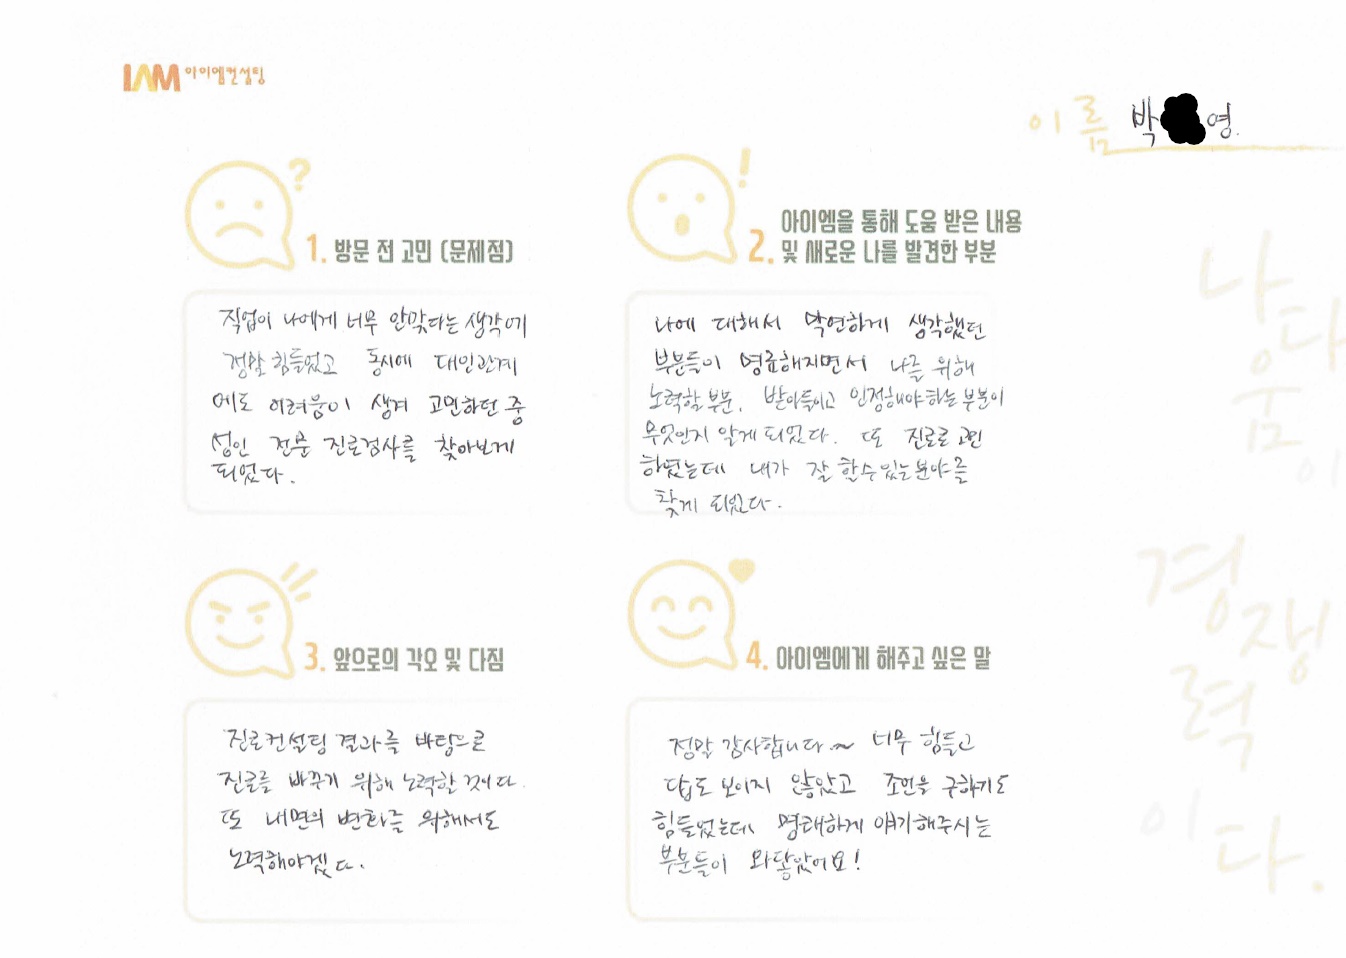 IAM 아이엠컨설팅
이름 박 영.
1. 방문 전 고민 (문제점)
직업이 나에게 너무 안맞다는 생각에
정말 힘들었고 동시에 대인관계
에도 어려움이 생겨 고민하던 중
성인 전문 진로검사를 찾아보게
되었다.
2. 아이엠을 통해 도움 받은 내용
및 새로운 나를 발견한 부분
나에 대해서 막연하게 생각했던
부분들이 명료해지면서 나를 위해
노력할 부분, 받아들이고 인정해야하는 부분이
무엇인지 알게 되었다. 또 진로로 고민
하였는데 내가 잘 할수있는 분야를
찾게 되었다.
3. 앞으로의 각오 및 다짐
진로컨설팅 결과를 바탕으로
진로를 바꾸기 위해 노력할 것이다.
또 내면의 변화를 위해서도
노력해야겠다.
4. 아이엠에게 해주고 싶은 말
정말 감사합니다~ 너무 힘들고
답도 보이지 않았고 조언을 구하기도
힘들었는데 명쾌하게 얘기해주시는
부분들이 와닿았어요!
나다움이
경쟁력
이다.